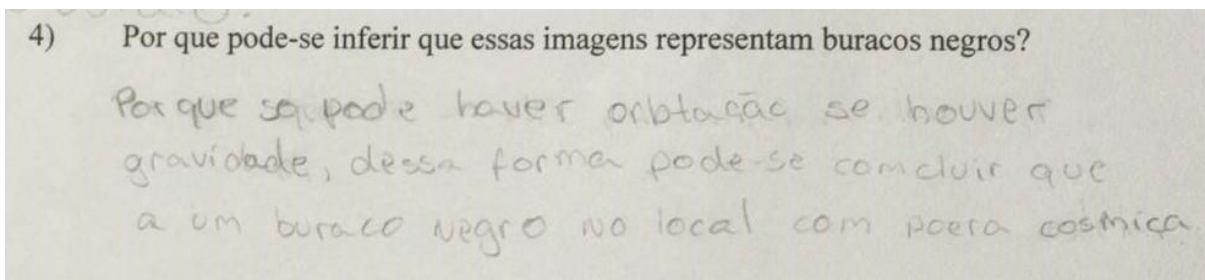 4) Por que pode-se inferir que essas imagens representam buracos negros?
Por que so pode haver orbtação se houver
gravidade, dessa forma pode-se comcluir que
a um buraco negro no local com poera cosmica.